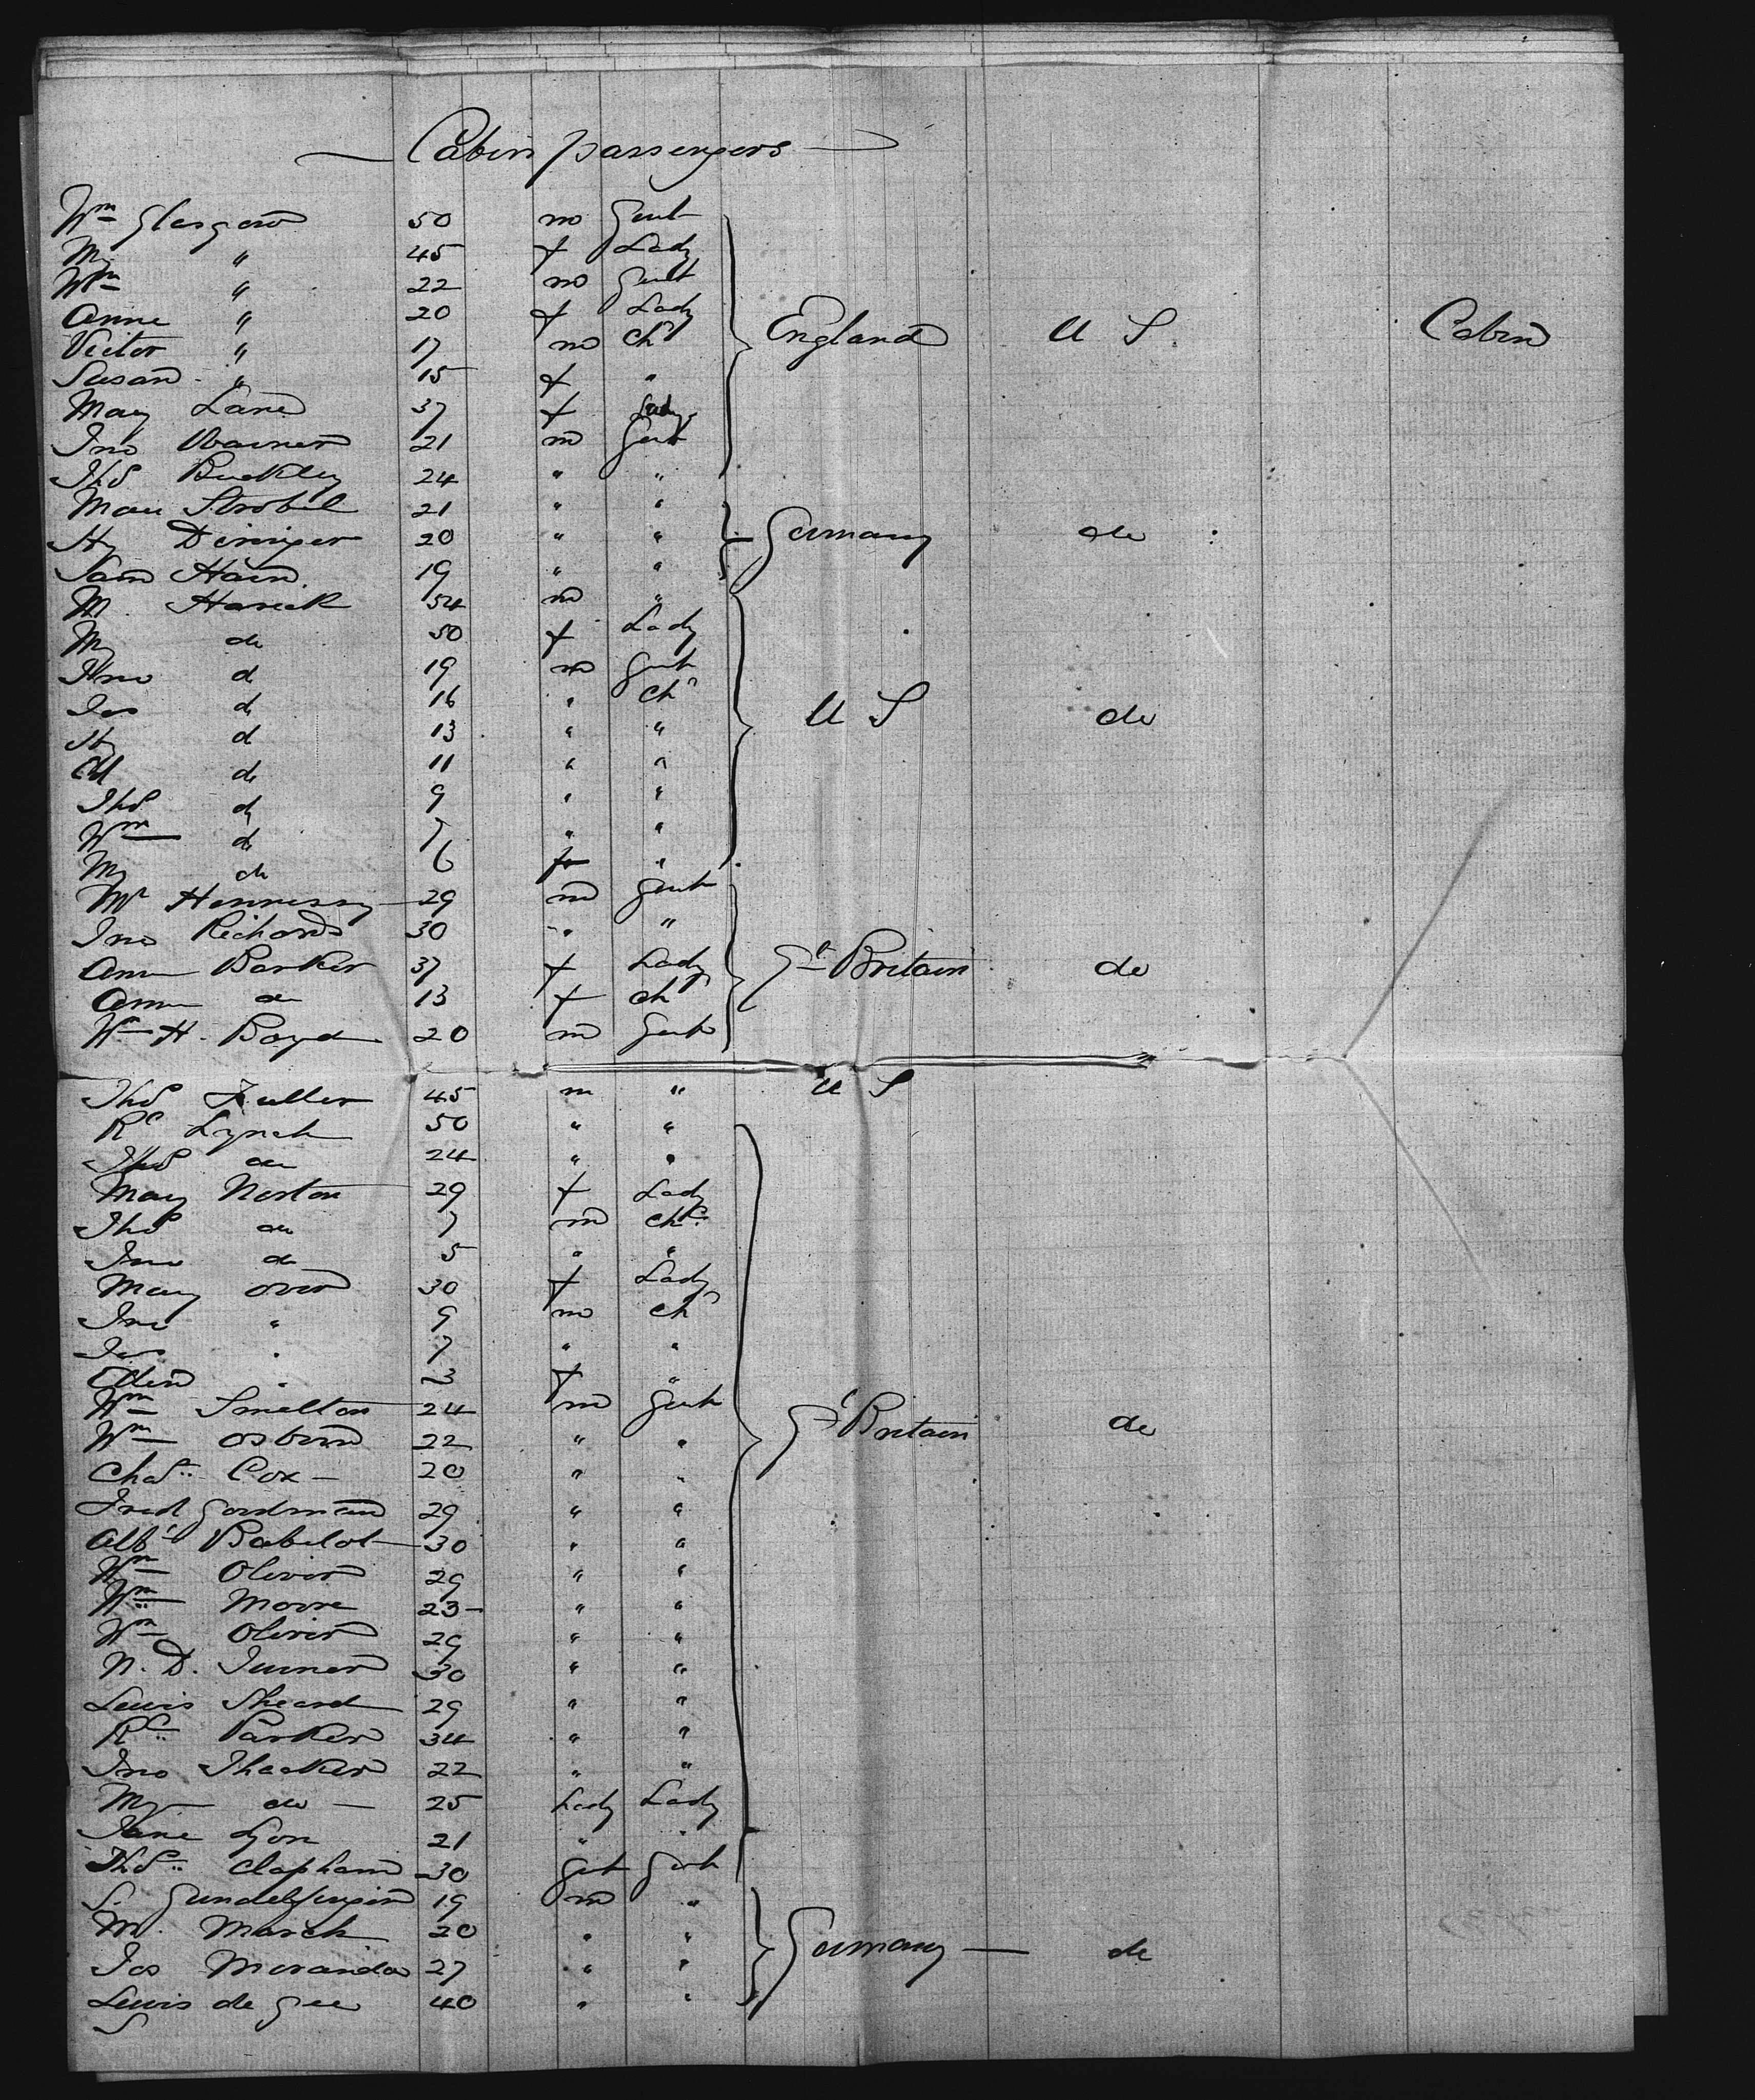 Cabin passengers
Wm Glasgow 50 m Gent
My " 45 f Lady
Wm " 22 m Gent
Anne " 20 f Lady
Victor " 17 m Ch England U S. Cabin
Susan " 15 f "
Mary Lane 37 f Lady
Jno Warner 21 m Gent
Thos Buckley 24 " "
Max Strobel 21 " "
Hy Deninger 20 " " Germany do
Sam Hain 19 " "
M. Harick 54 m "
My do 50 f Lady
Jno d 19 m Gent
Jas d 16 " Ch
Hy d 13 " " U S do
Al d 11 " "
Thos d 9 " "
Wm d 7 " "
My do 6 f "
Mr Hennessy 29 m Gent
Jno Richards 30 " "
Ann Barker 37 f Lady Gt Britain do
Ann do 13 f ch
Wm H. Boyd 20 m Gent
Thos Fuller 45 m " U S
Rd Lynch 50 " "
Thos do 24 " "
Mary Norton 29 f Lady
Thos do 7 m ch
Jno do 5 " "
Mary Over 30 f Lady
Jno " 9 m ch
Jas " 7 " "
Ellen " 3 f "
Wm Smelton 24 m Gent
Wm Osborn 22 " " Gt Britain do
Chas Cox 20 " "
Fred Goodman 29 " "
Albt Babelot 30 " "
Wm Oliver 29 " "
Wm Moore 23 " "
Wm Oliver 29 " "
N. D. Turner 30 " "
Lewis Sheard 29 " "
Rd Parker 34 " "
Jno Thacker 22 " "
My do 25 Lady Lady
Jane Lyon 21 " "
Thos Clapham 30 Gent Gent
S. 19 m "
M. March 20 " "
Jos Moranda 27 " " Germany do
Lewis de Gee 40 " "